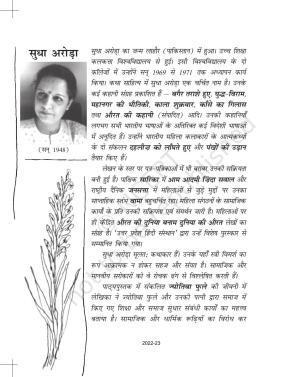 सुधा अरोड़ा
(सन् 1948)
सुधा अरोड़ा का जन्म लाहौर (पाकिस्तान) में हुआ। उच्च शिक्षा
कलकत्ता विश्वविद्यालय से हुई। इसी विश्वविद्यालय के दो
कॉलेजों में उन्होंने सन् 1969 से 1971 तक अध्यापन कार्य
किया। कथा साहित्य में सुधा अरोड़ा एक चर्चित नाम है। उनके
कई कहानी संग्रह प्रकाशित हैं – बगैर तराशे हुए, युद्ध-विराम,
महानगर की भौतिकी, काला शुक्रवार, काँसे का गिलास
तथा औरत की कहानी (संपादित) आदि। उनकी कहानियाँ
लगभग सभी भारतीय भाषाओं के अतिरिक्त कई विदेशी भाषाओं
में अनूदित हैं। उन्होंने भारतीय महिला कलाकारों के आत्मकथ्यों
के दो संकलन दहलीज़ को लाँघते हुए और पंखों की उड़ान
तैयार किए हैं।
लेखन के स्तर पर पत्र-पत्रिकाओं में भी बराबर उनकी सक्रियता
बनी हुई है। पाक्षिक सारिका में आम आदमी ज़िंदा सवाल और
राष्ट्रीय दैनिक जनसत्ता में महिलाओं से जुड़े मुद्दों पर उनका
साप्ताहिक स्तंभ वामा बहुचर्चित रहा। महिला संगठनों के सामाजिक
कार्यों के प्रति उनकी सक्रियता एवं समर्थन जारी है। महिलाओं पर
ही केंद्रित औरत की दुनिया बनाम दुनिया की औरत लेखों का
संग्रह है। 'उत्तर प्रदेश हिंदी संस्थान' द्वारा उन्हें विशेष पुरस्कार से
सम्मानित किया गया।
सुधा अरोड़ा मूलतः कथाकार हैं। उनके यहाँ स्त्री विमर्श का
रूप आक्रामक न होकर सहज और संयत है। सामाजिक और
मानवीय सरोकारों को वे रोचक ढंग से विश्लेषित करती हैं।
पाठ्यपुस्तक में संकलित ज्योतिबा फुले की जीवनी में
लेखिका ने ज्योतिबा फुले और उनकी पत्नी द्वारा समाज में
किए गए शिक्षा और समाज सुधार संबंधी कार्यों का महत्त्व
बताया है। सामाजिक और धार्मिक रूढ़ियों का विरोध कर
2022-23